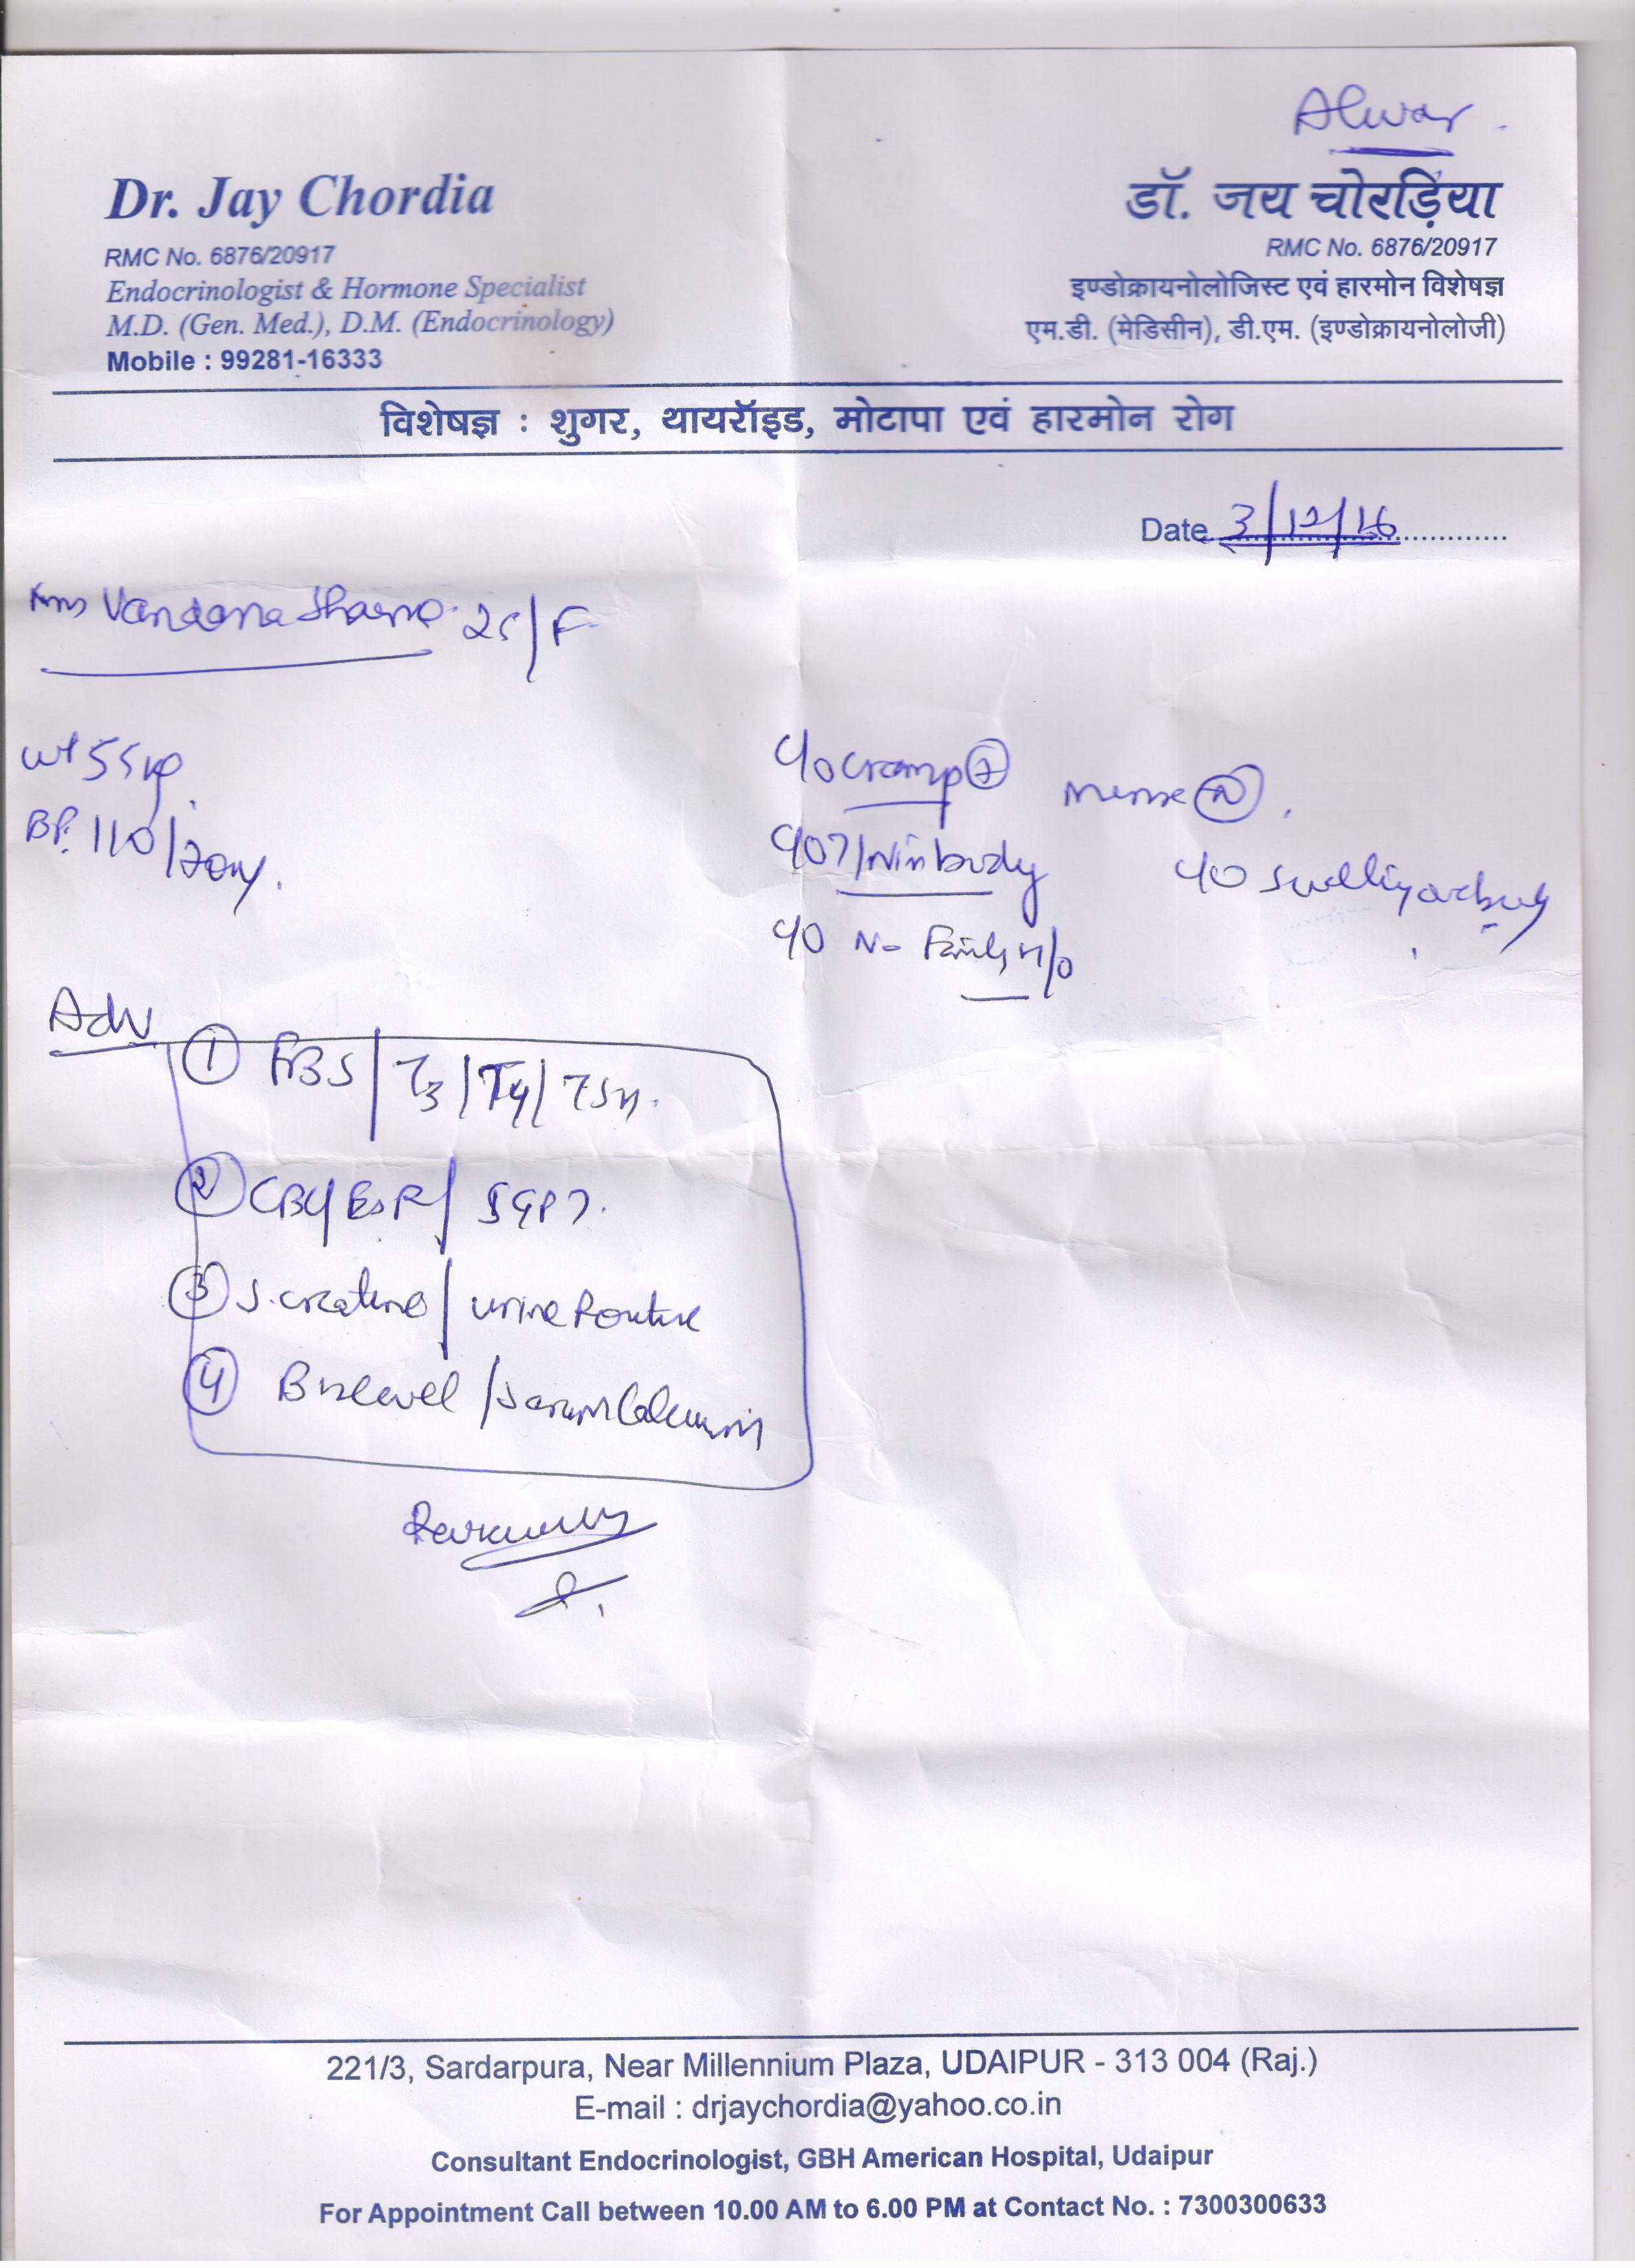 Alwar
Dr. Jay Chordia
RMC No. 6876/20917
Endocrinologist & Hormone Specialist
M.D. (Gen. Med.), D.M. (Endocrinology)
Mobile : 99281-16333
डॉ. जय चोरड़िया
RMC No. 6876/20917
इण्डोक्रायनोलोजिस्ट एवं हारमोन विशेषज्ञ
एम.डी. (मेडिसीन), डी.एम. (इण्डोक्रायनोलोजी)
विशेषज्ञ : शुगर, थायरॉइड, मोटापा एवं हारमोन रोग
Date 3/12/16
Vandana Sharma 25/F
wt 55kg
BP. 110/70
C/o cramp +
mense N
C/o T/N in body
C/o swelling
C/o No Family H/o
Adv
1 FBS/T3/T4/TSH
2 CBC/ESR/SGPT
3 S. creatine/urine Routine
4 B12 level/Serum Calcium
221/3, Sardarpura, Near Millennium Plaza, UDAIPUR - 313 004 (Raj.)
E-mail : drjaychordia@yahoo.co.in
Consultant Endocrinologist, GBH American Hospital, Udaipur
For Appointment Call between 10.00 AM to 6.00 PM at Contact No. : 7300300633